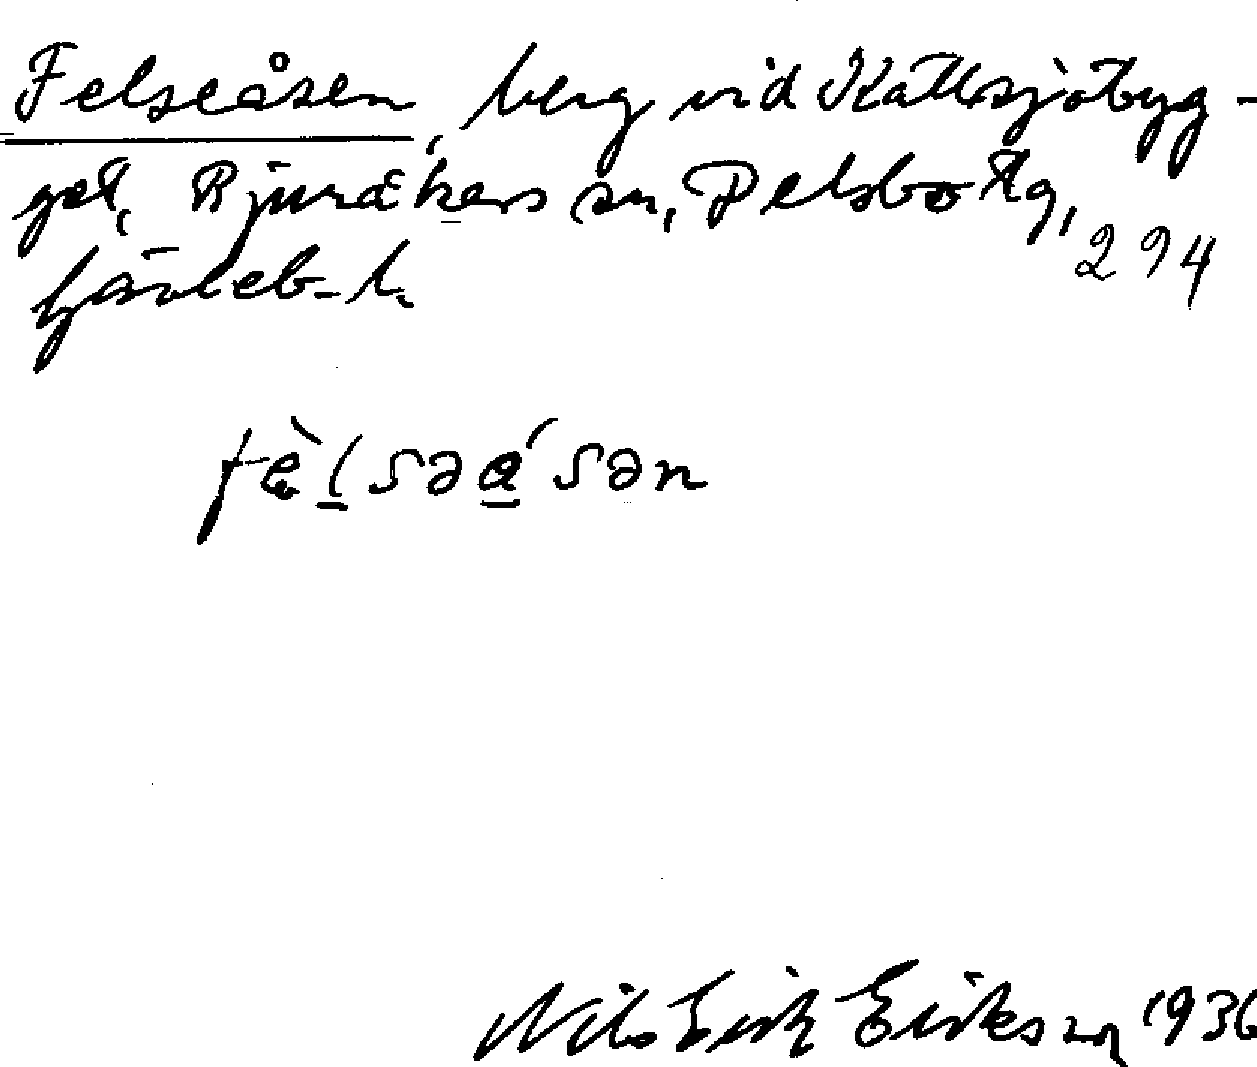 Felseåsen, berg vid Kattsjöbyg-
get, Bjuråkers sn, Delsbo tg,
Gävleb. l. 294
fè̱lsəa̱´sən
Nils Erik Eriksson 1936